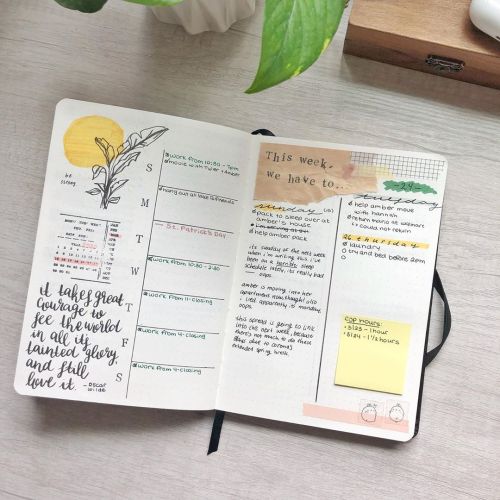 be
strong
it takes great
courage to
see the world
in all its
tainted glory,
and still
love it.
-oscar
wilde
S
M
T
W
T
F
S
work from 10:30 - 7pm
movie with Tyler + Amber
St. Patrick's Day
work from 10:30 - 2:30
work from 11-closing
work from 4-closing
work from 4-closing
This week,
we have to...
sunday
pack to sleep over at
amber's house
help amber pack
its sunday of the next week
when i'm writing this i've
been on a horrible sleep
schedule lately, its really bad
oops
amber is moving into her
this spread is going to link
into the next week, because
there's not much to do these
days due to corona/
extended spring break.
-24-
tuesday
help amber move
with hannah
return mario at walmart
↳ could not return
26 thursday
laundry
try and bed before 2am
cop hours:
• 3/23 - 1 hour
• 3/24 - 1 1/2 hours